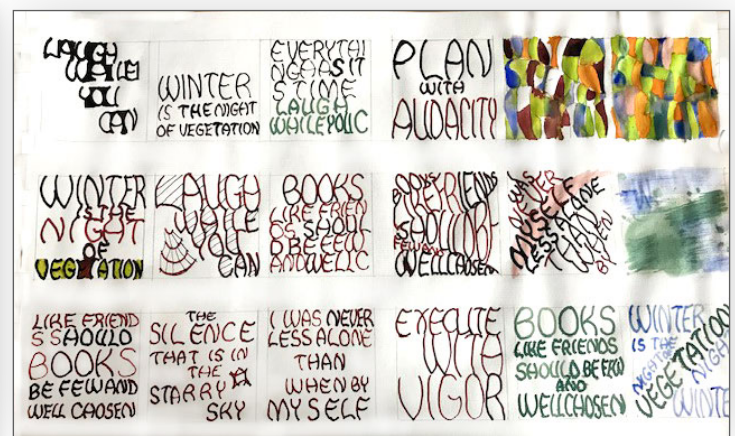 LAUGH
WHILE
YOU
CAN
WINTER
IS THE NIGHT
OF VEGETATION
EVERYTHI
NGHASIT
STIME
LAUGH
WHILEYOUC
PLAN
WITH
AUDACITY
WINTER
IS THE
NIGHT
OF
VEGETATION
LAUGH
WHILE
YOU
CAN
BOOKS
LIKE FRIEN
DS SHOUL
D BE FEW
ANDWELLC
BOOKS
LIKEFRIENDS
SHOULDBE
FEWAND
WELLCHOSEN
I WAS
NEVER
LESS ALONE
THAN
WHEN
BY
MYSELF
LIKE FRIEND
S SHOULD
BOOKS
BE FEW AND
WELL CHOSEN
THE
SILENCE
THAT IS IN
THE
STARRY
SKY
I WAS NEVER
LESS ALONE
THAN
WHEN BY
MYSELF
EXECUTE
WITH
VIGOR
BOOKS
LIKE FRIENDS
SHOULD BE FEW
AND
WELLCHOSEN
WINTER
IS THE
NIGHT OF
VEGETATION
NIGHT
WINTE